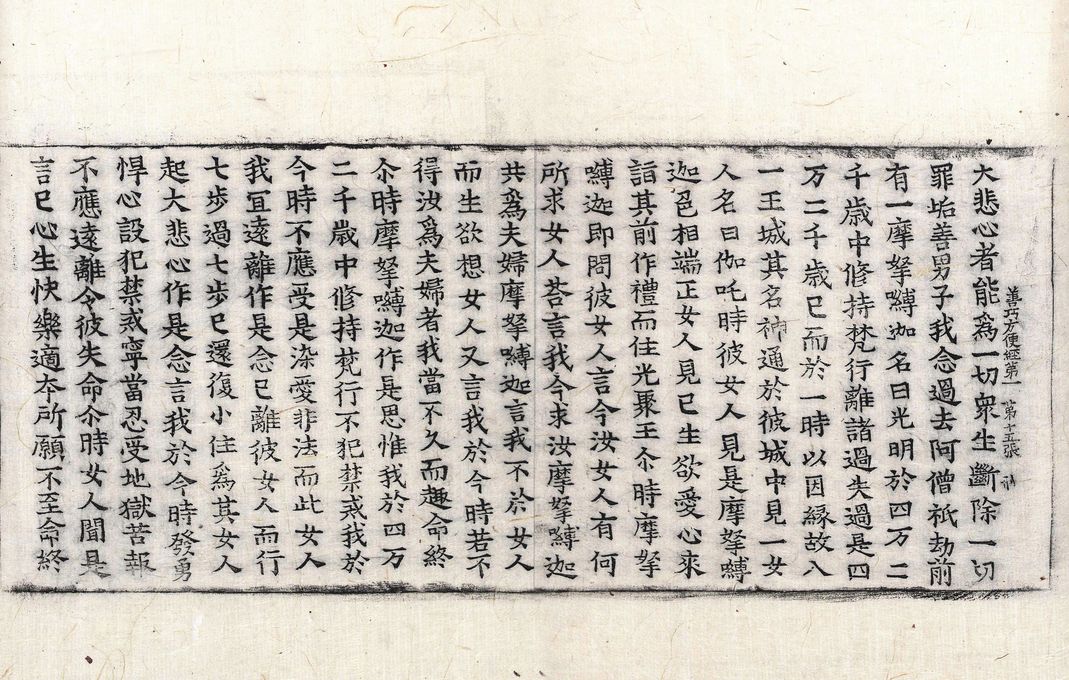 善巧方便經第一 第十五張
大悲心者能爲一切衆生斷除一切
罪垢善男子我念過去阿僧祇劫前
有一摩拏嚩迦名曰光明於四万二
千歲中修持梵行離諸過失過是四
万二千歲已而於一時以因縁故入
一王城其名神通於彼城中見一女
人名曰伽吒時彼女人見是摩拏嚩
迦色相端正女人見已生欲愛心來
詣其前作禮而住光聚王尒時摩拏
嚩迦即問彼女人言今汝女人有何
所求女人荅言我今求汝摩拏嚩迦
共爲夫婦摩拏嚩迦言我不於女人
而生欲想女人又言我於今時若不
得汝爲夫婦者我當不久而趣命終
尒時摩拏嚩迦作是思惟我於四万
二千歲中修持梵行不犯禁戒我於
今時不應受是染愛非法而此女人
我宜遠離作是念已離彼女人而行
七步過七步已還復小住爲其女人
起大悲心作是念言我於今時發勇
悍心設犯禁戒寧當忍受地獄苦報
不應遠離令彼失命尒時女人聞是
言已心生快樂適本所願不至命終